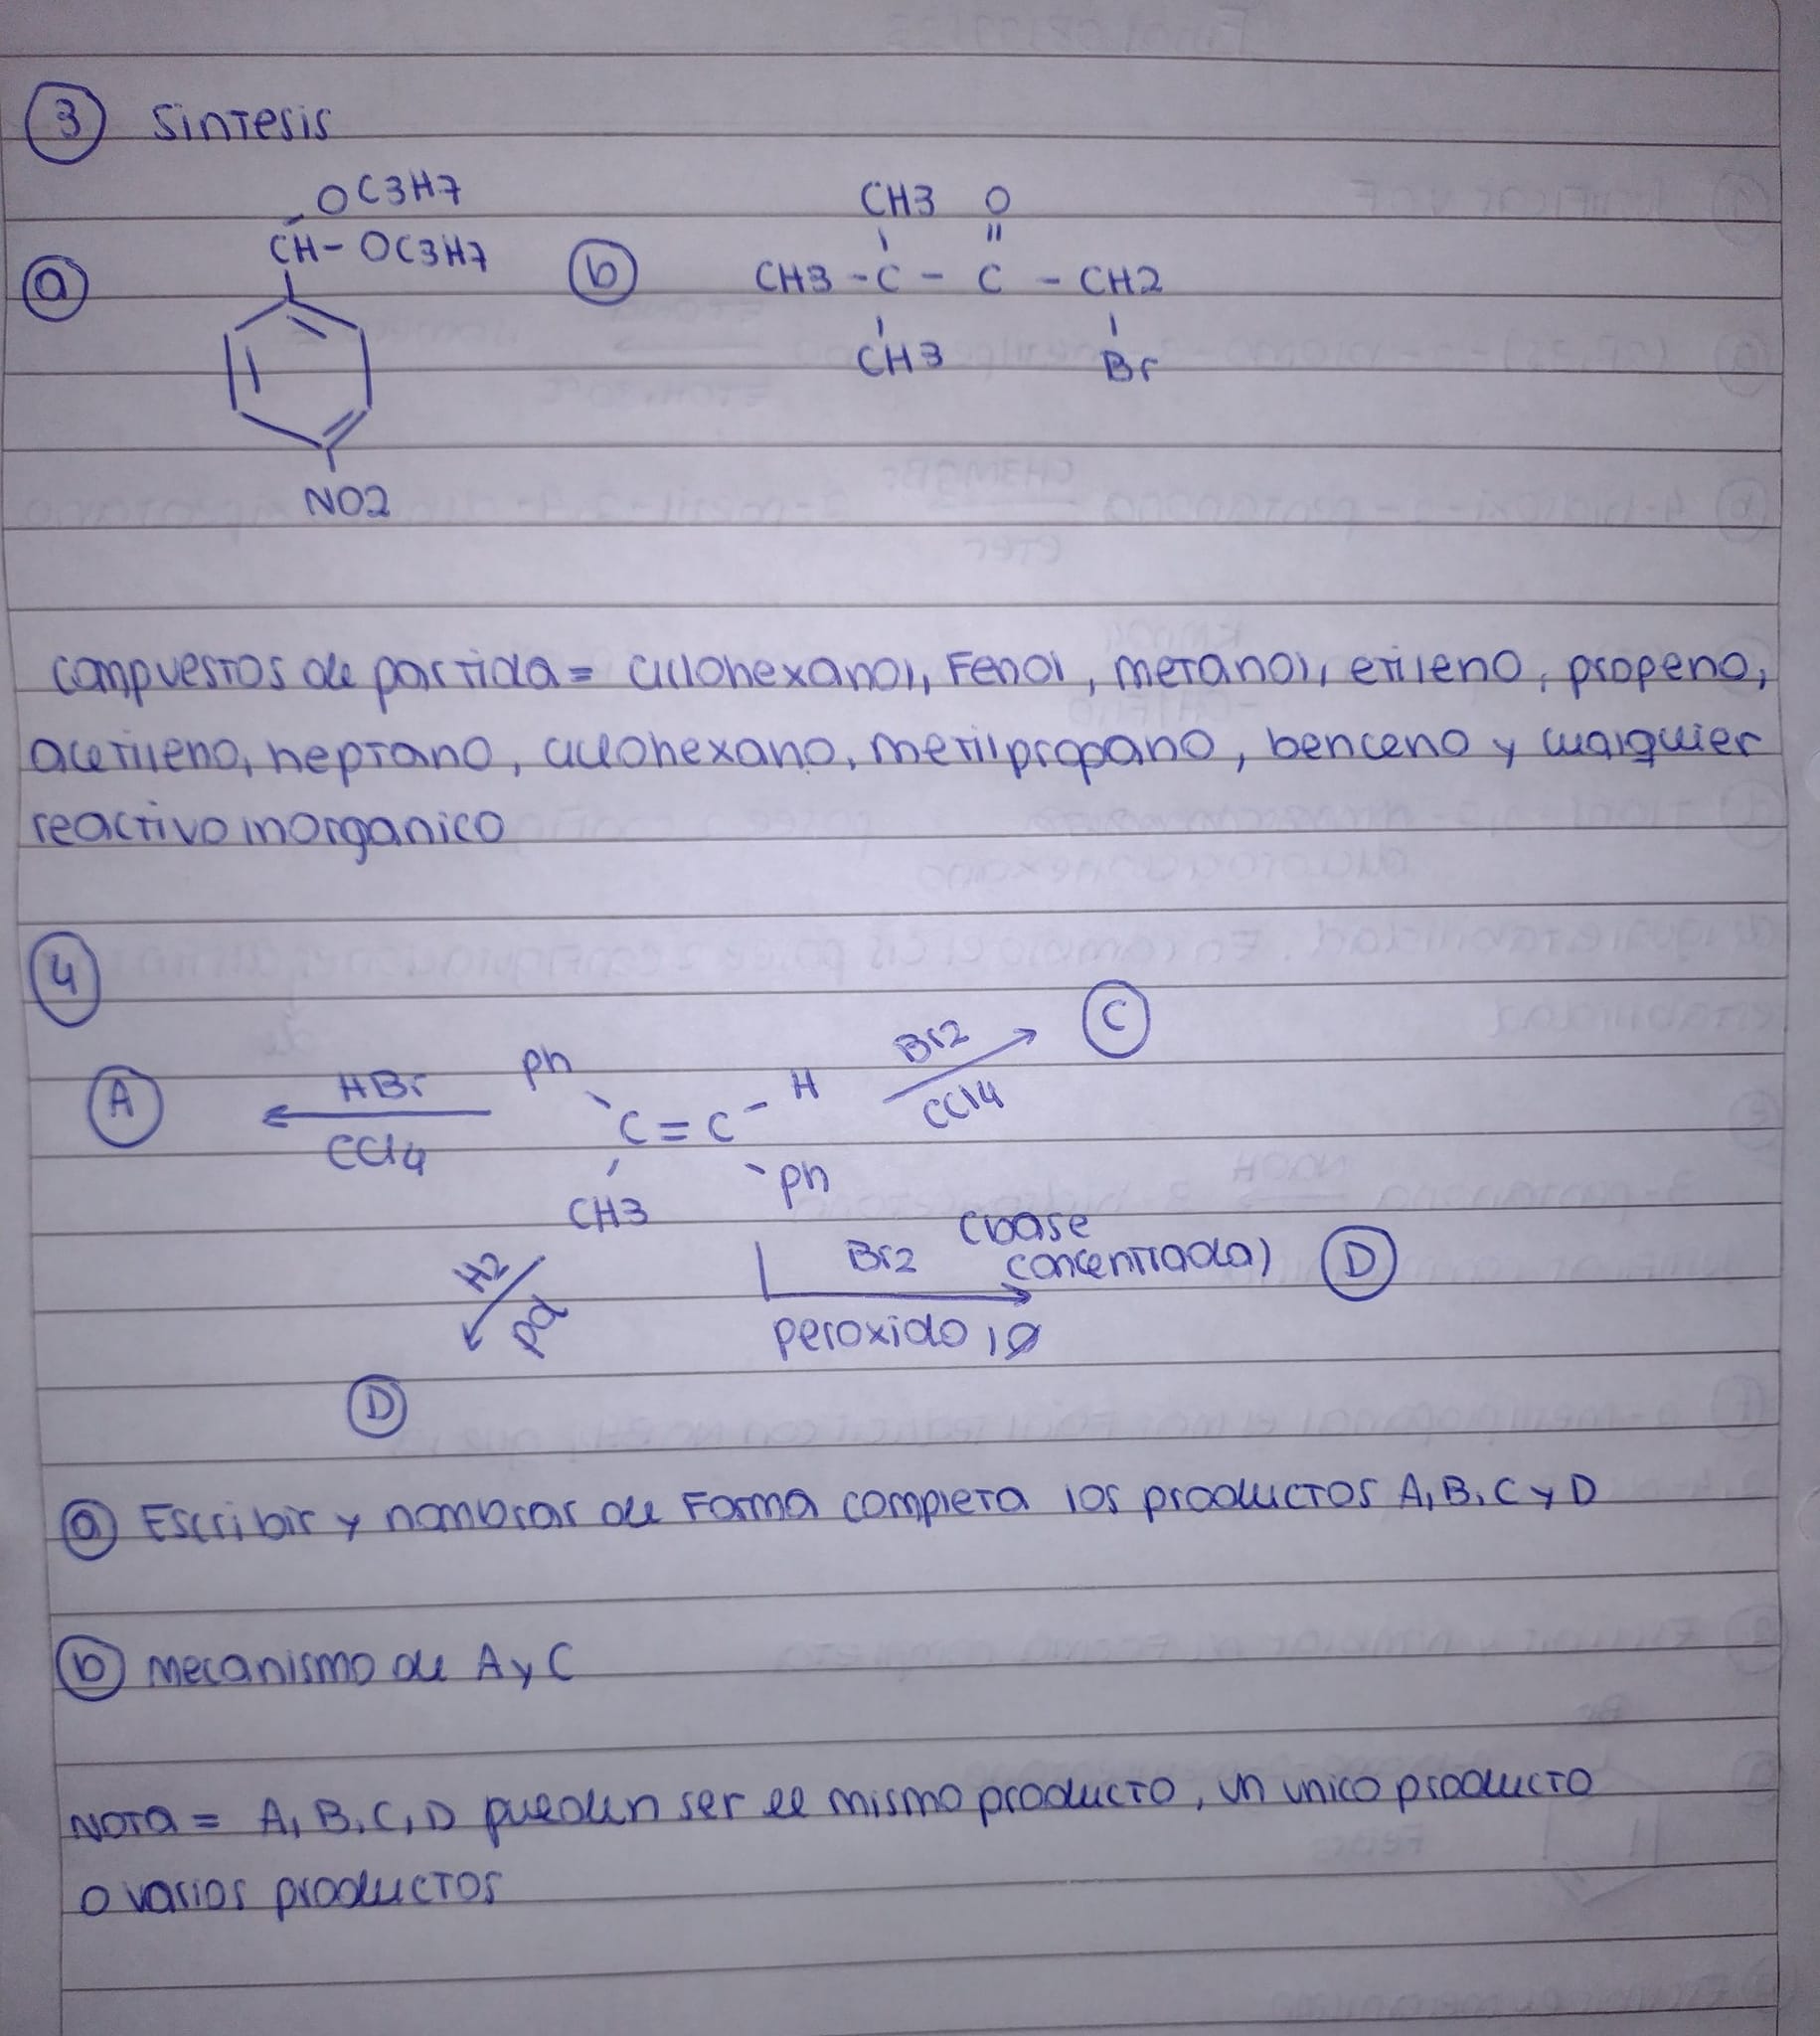 3 Sintesis
OC3H7
CH- OC3H7
a
NO2
b
CH3 O
CH3 - C - C - CH2
CH3 Br
compuestos de partida = ciclohexanol, Fenol, metanol, etileno, propeno,
acetileno, heptano, ciclohexano, metilpropano, benceno y cualquier
reactivo inorganico
4
A
HBr
CCl4
Ph
C = C - H
CH3
Ph
Br2
CCl4
C
H2
Pd
D
Br2 (base
concentrada)
peroxido
D
a Escribir y nombrar de Forma completa los productos A, B, C y D
b mecanismo de A y C
NOTA = A, B, C, D pueden ser el mismo producto, un unico producto
o varios productos